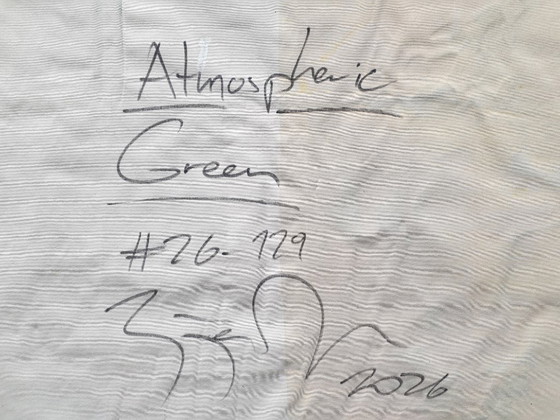 Atmospheric
Green
#26-129
2026